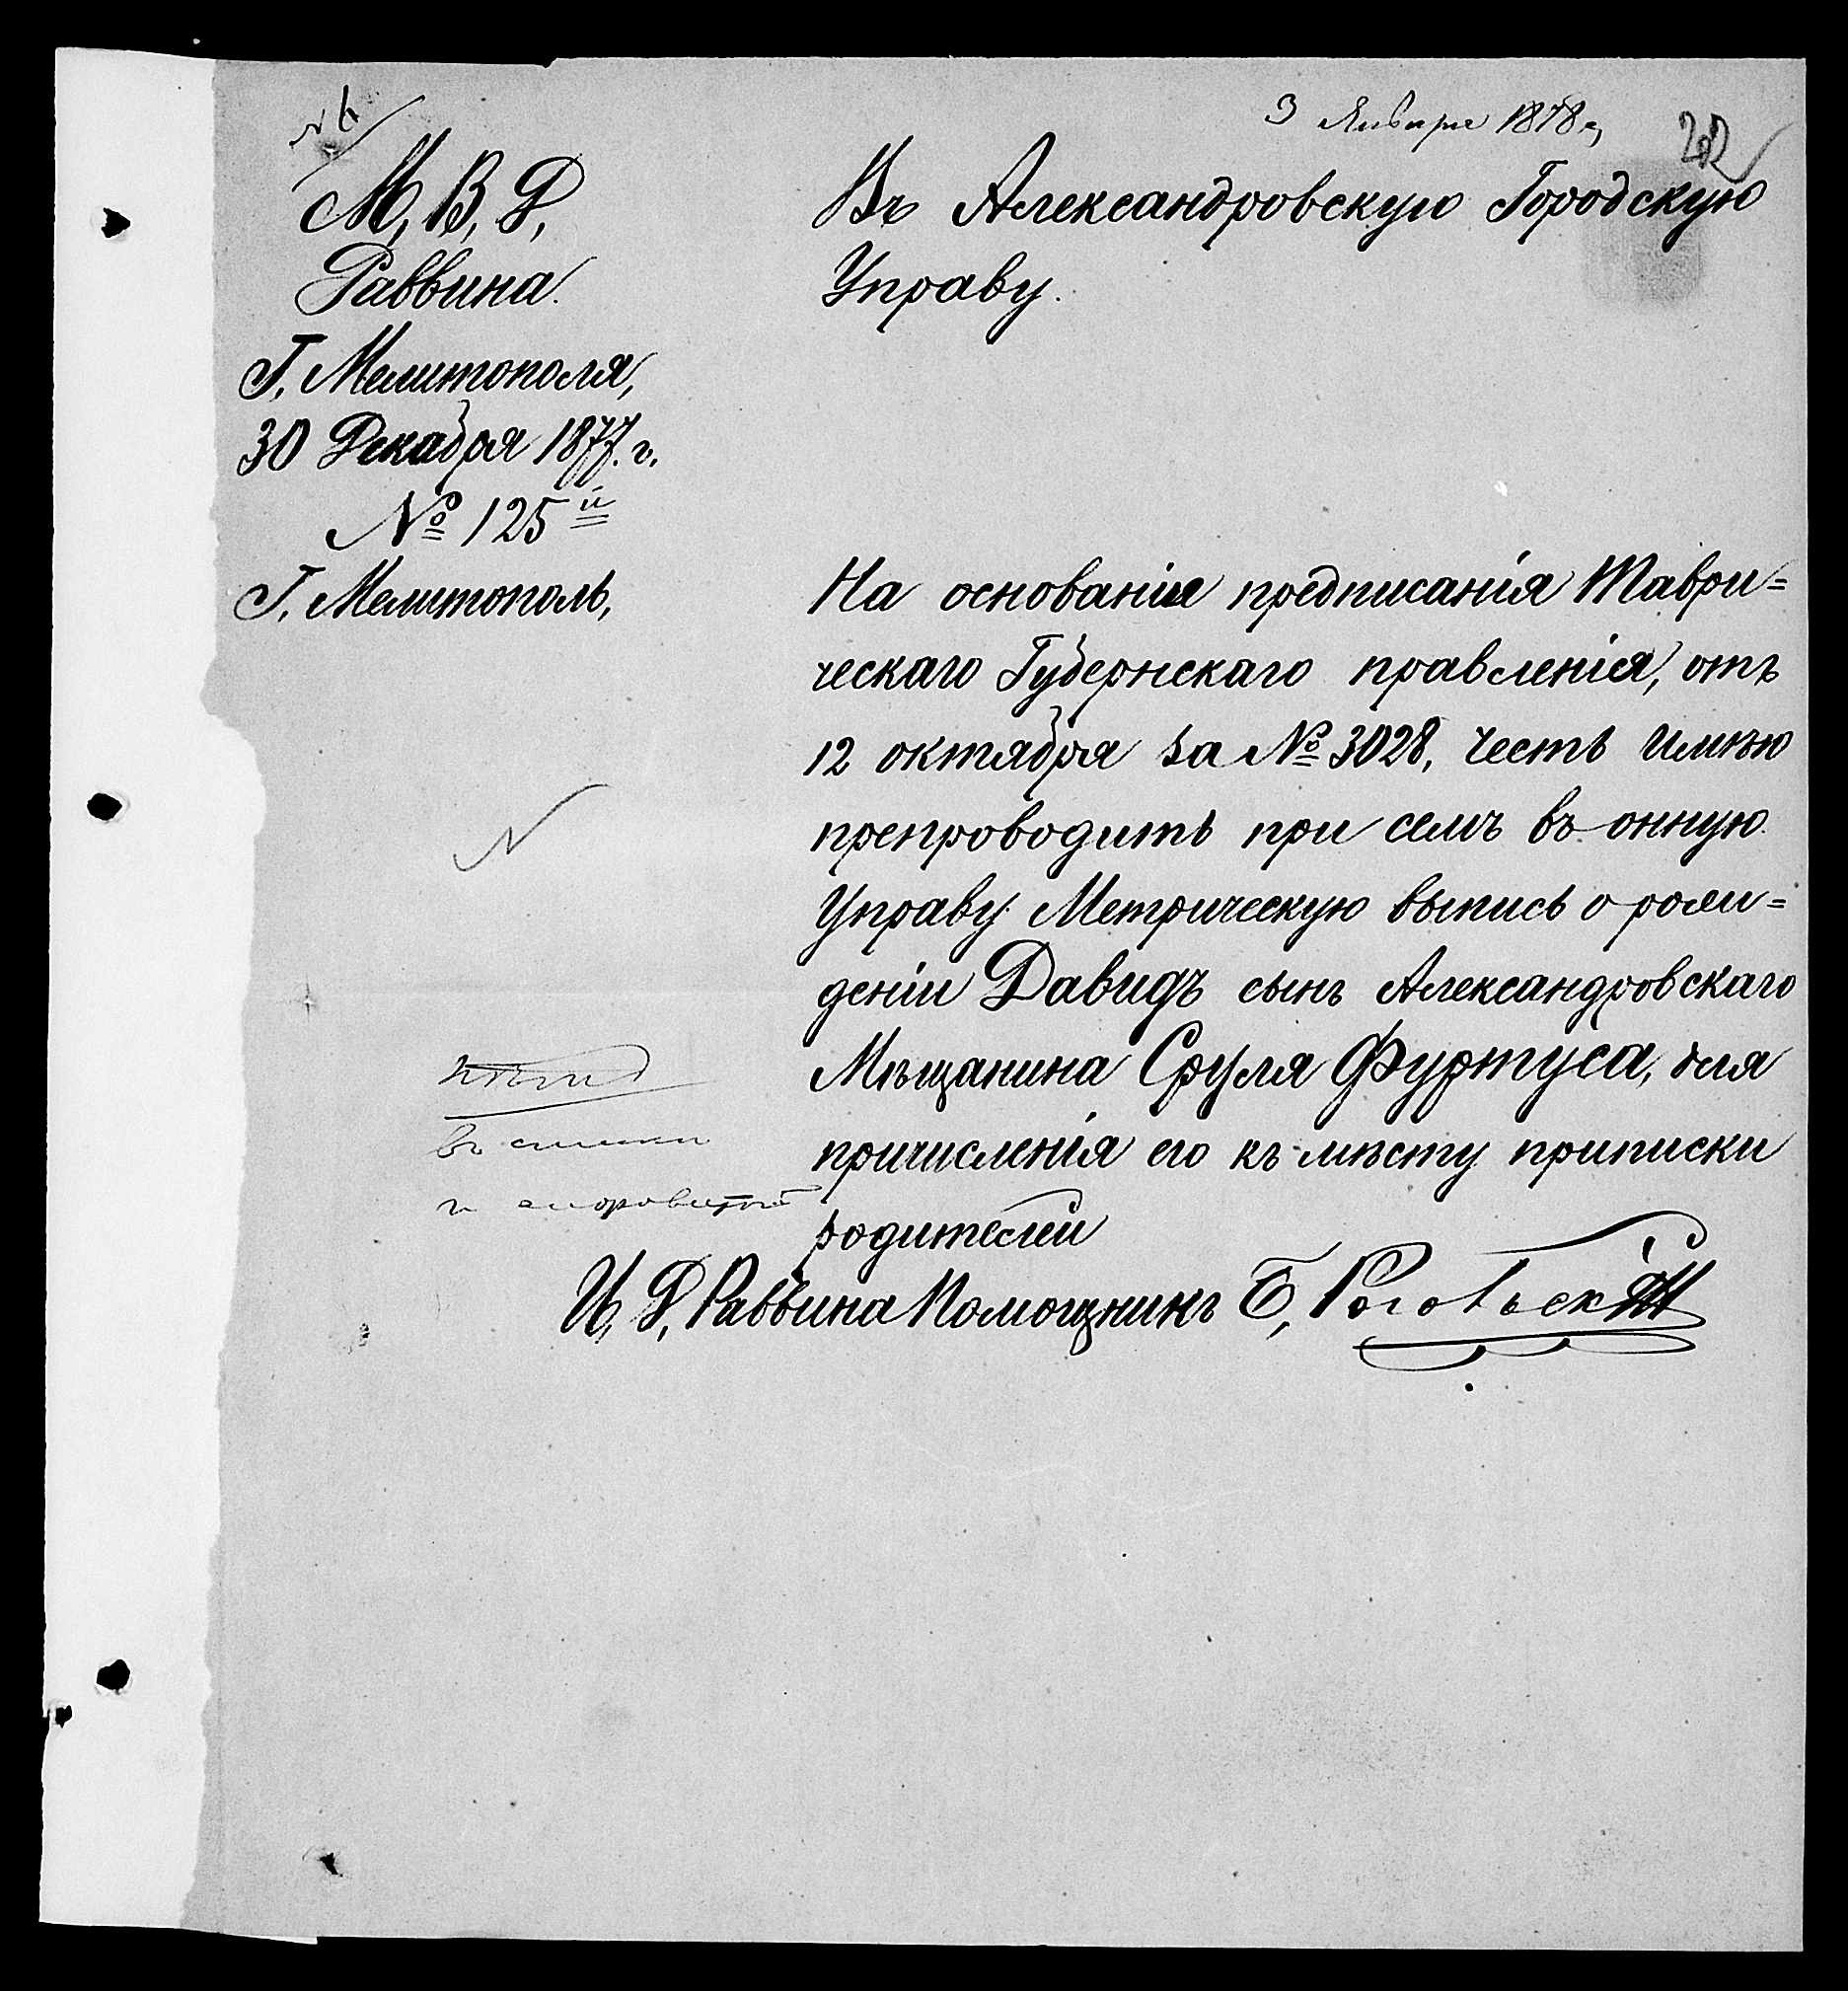 № 6
3 Января 1878 г,
22
М, В, Д,
Раввина.
Г. Мелитополя,
30 Декабря 1877. г.
№ 125й
Г. Мелитополь,
Въ Александровскую Городскую
Управу.
На основанiя предписанiя Таври=
ческаго Губернскаго правленiя, отъ
12 октября за № 3028, честь имѣю
препроводить при семъ въ онную
Управу Метрическую выпись о рож=
денiи Давидъ сынъ Александровскаго
Мѣщанина Сруля Фуртуса, для
причисленiя его къ мѣсту приписки
родителей
въ
и
И, Д, Раввина Помощникъ Б, Роговскiй